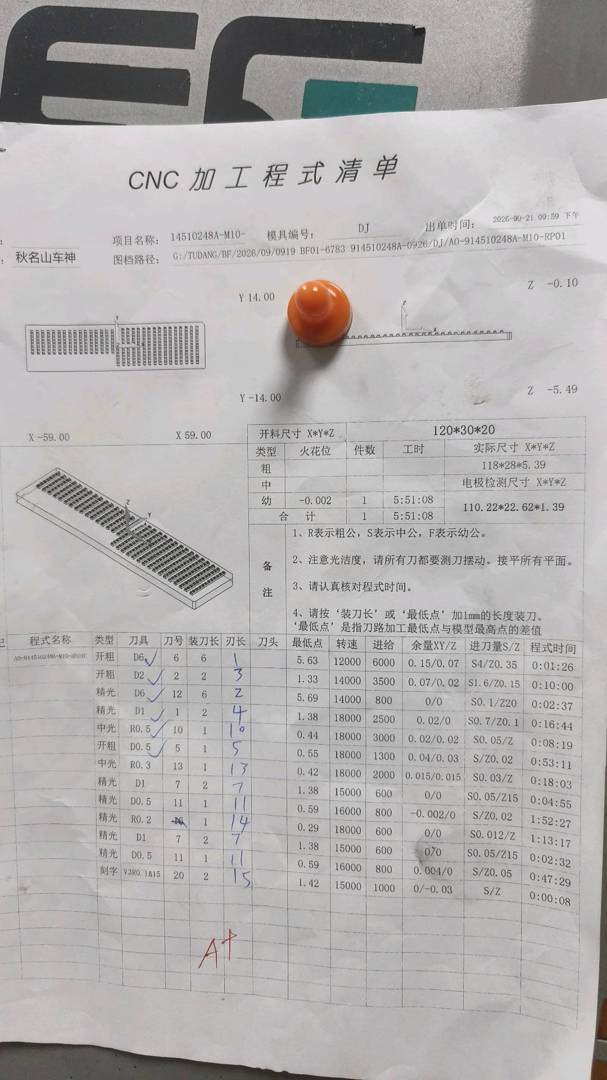 CNC 加工程式清单
项目名称: 14510248A-M10- 模具编号: DJ 出单时间: 2026-09-21 09:59 下午
秋名山车神 图档路径: G:/TUDANG/BF/2026/09/0919 BF01-6783 914510248A-0926/DJ/A0-914510248A-M10-RP01
Z -0.10
Y 14.00
Y -14.00
Z -5.49
X -59.00 X 59.00
开料尺寸 X*Y*Z 120*30*20
类型 火花位 件数 工时 实际尺寸 X*Y*Z
粗 118*28*5.39
中 电极检测尺寸 X*Y*Z
幼 -0.002 1 5:51:08 110.22*22.62*1.39
合 计 1 5:51:08
备注
1、R表示粗公，S表示中公，F表示幼公。
2、注意光洁度，请所有刀都要测刀摆动。接平所有平面。
3、请认真核对程式时间。
4、请按‘装刀长’或‘最低点’加1mm的长度装刀。
‘最低点’是指刀路加工最低点与模型最高点的差值
程式名称 类型 刀具 刀号 装刀长 刃长 刀头 最低点 转速 进给 余量XY/Z 进刀量S/Z 程式时间
开粗 D6 6 6 1 5.63 12000 6000 0.15/0.07 S4/Z0.35 0:01:26
开粗 D2 2 2 3 1.33 14000 3500 0.07/0.02 S1.6/Z0.15 0:10:00
精光 D6 12 6 2 5.69 14000 800 0/0 S0.1/Z20 0:02:37
精光 D1 1 2 4 1.38 18000 2500 0.02/0 S0.7/Z0.1 0:16:44
中光 R0.5 10 1 10 0.44 18000 3000 0.02/0.02 S0.05/Z 0:08:19
开粗 D0.5 5 1 5 0.55 18000 1300 0.04/0.03 S/Z0.02 0:53:11
中光 R0.3 13 1 13 0.42 18000 2000 0.015/0.015 S0.03/Z 0:18:03
精光 D1 7 2 7 1.38 15000 600 0/0 S0.05/Z15 0:04:55
精光 D0.5 11 1 11 0.59 16000 800 -0.002/0 S/Z0.02 1:52:27
精光 R0.2 1 14 0.29 18000 600 0/0 S0.012/Z 1:13:17
精光 D1 7 2 7 1.38 15000 600 0/0 S0.05/Z15 0:02:32
精光 D0.5 11 1 11 0.59 16000 800 0.004/0 S/Z0.05 0:47:29
刻字 20 2 15 1.42 15000 1000 0/-0.03 S/Z 0:00:08
A+